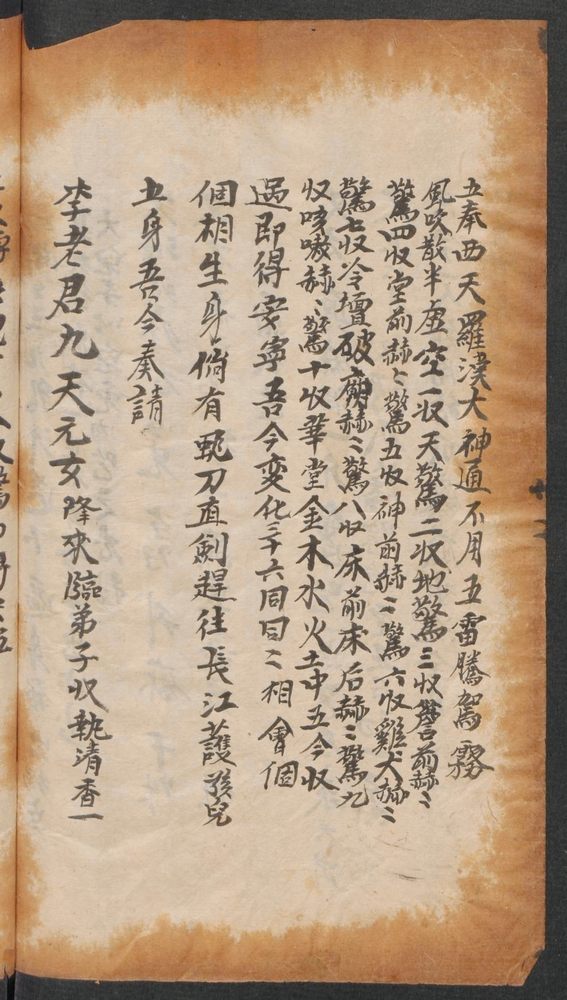 五奉西天羅漢大神通不用五雷騰駕霧
風吹散半虛空一收天驚二收地驚三收前赫〻
驚四收堂前赫〻驚五收神前赫〻驚六收雞犬赫〻
驚七收冷壇破廟赫〻驚八收床前床后赫〻驚九
收咳嗽赫〻驚十收華堂金木水火土中五今收
過即得安寧吾今变化三十六同曰〻相會個
個相生身俏有刀直劍趕往長江護孩兒
五身吾今奏請
李老君九天元女降來臨弟子收執清香一